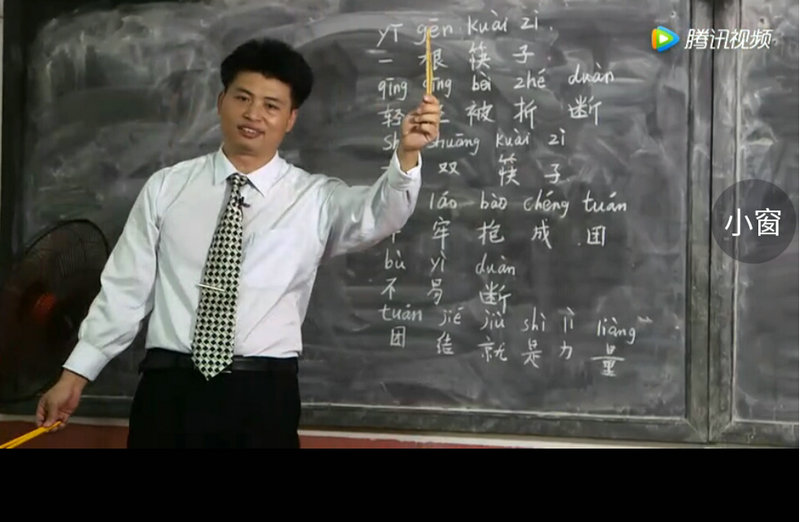 yī gēn kuài zì
腾讯视频
一 根 筷 子
qīng qīng bèi zhé duàn
轻 被 折 断
shuāng kuài zì
双 筷 子
小窗
láo bào chéng tuán
牢 抱 成 团
bù yì duàn
不 易 断
tuán jié jiù shì lì liàng
团 结 就 是 力 量